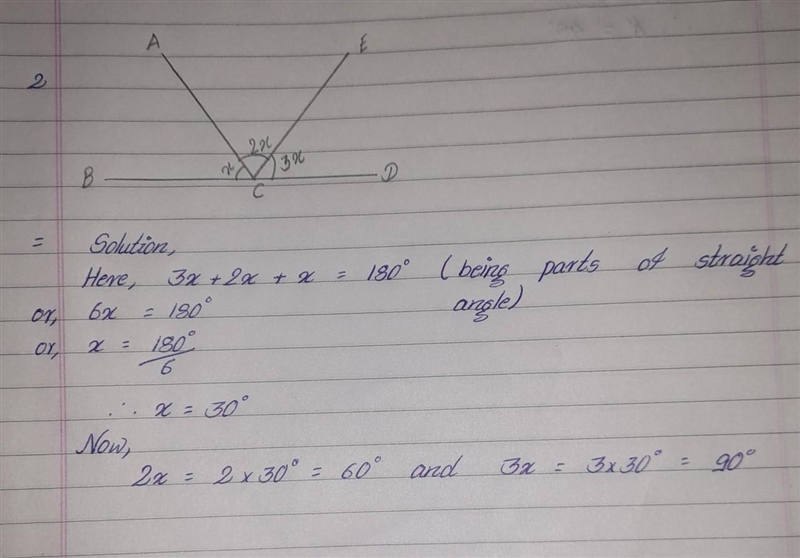 A E
2
2x
x 3x
B C D
= Solution,
Here, 3x + 2x + x = 180° (being parts of straight
angle)
or, 6x = 180°
or, x = 180°/6
∴ x = 30°
Now,
2x = 2 x 30° = 60° and 3x = 3x30° = 90°